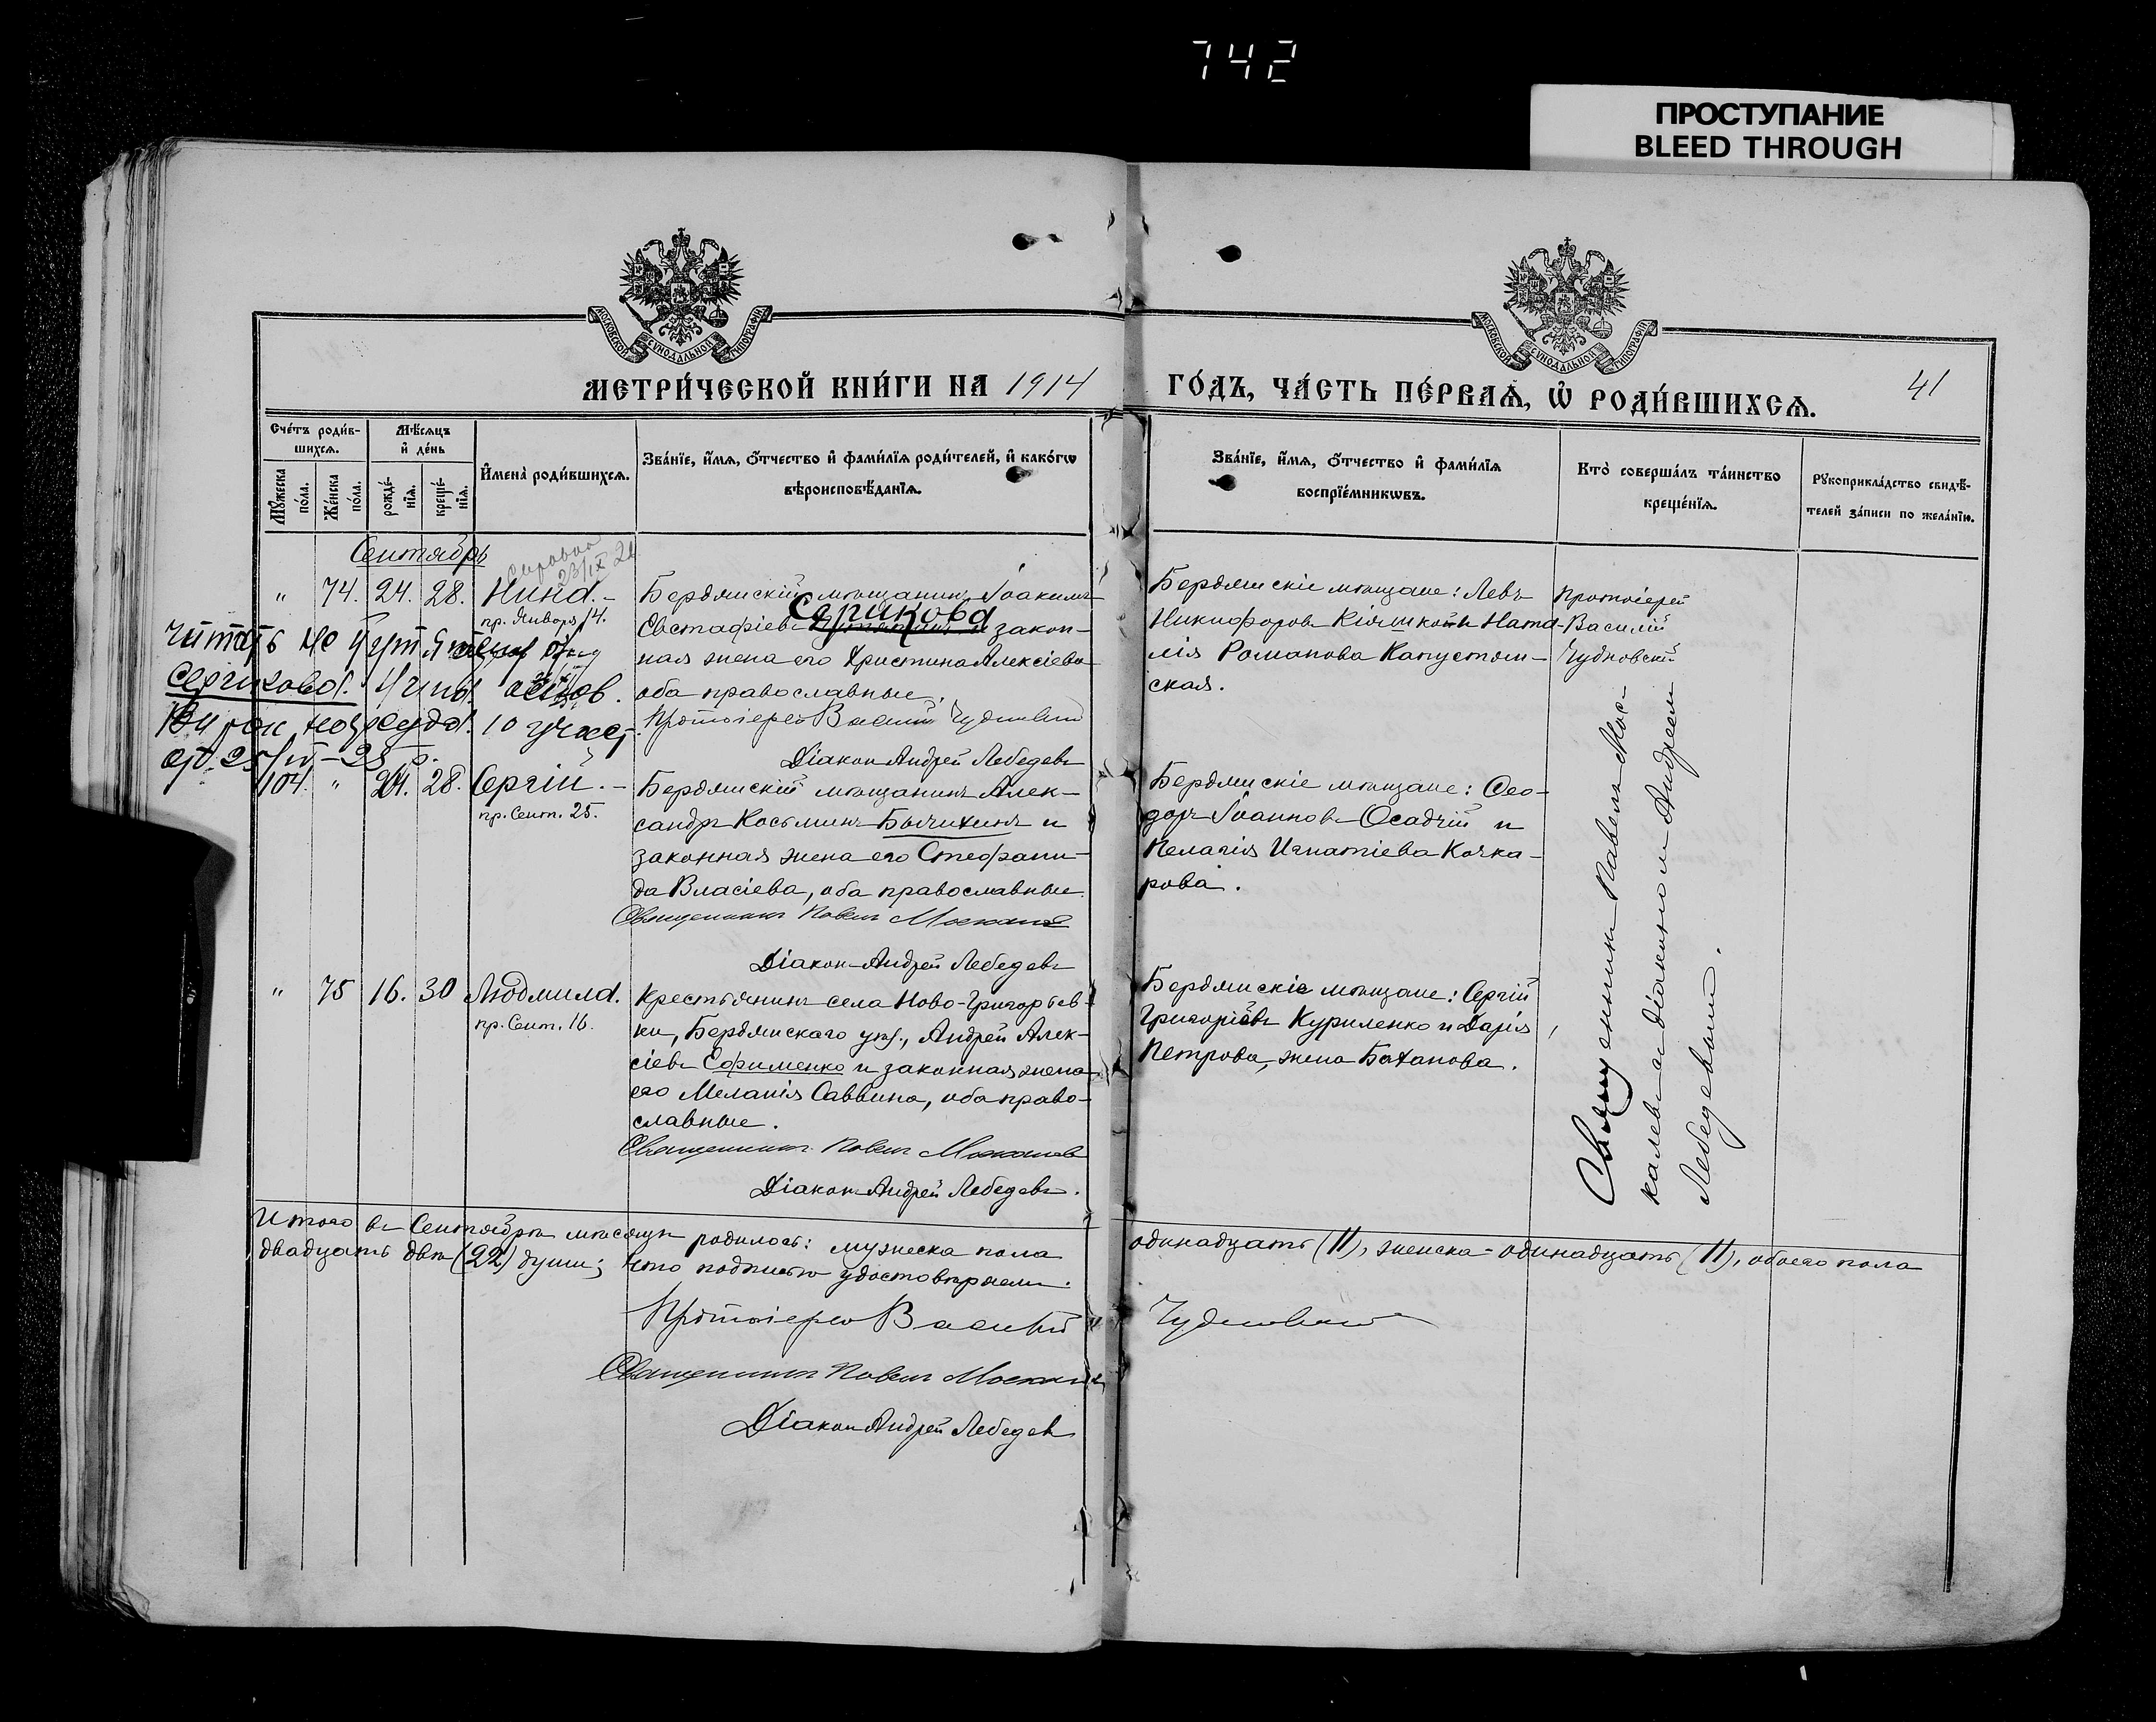 742
ПРОСТУПАНИЕ
BLEED THROUGH
МОСКОВСКОЙ СѴНОДАЛЬНОЙ ТИПОГРАФІИ
МОСКОВСКОЙ СѴНОДАЛЬНОЙ ТИПОГРАФІИ
МЕТРИ́ЧЕСКОЙ КНИ́ГИ НА 1914
ГО́ДЪ, ЧА́СТЬ ПЕ́РВАѦ, Ѡ҆ РОДИ́ВШИХСѦ.
41
Сче́тъ роди́в-
шихсѧ.
Мꙋ́жеска по́ла.
Же́нска по́ла.
Мѣ́сѧцъ
и҆ де́нь
рожде́-
нїѧ.
креще́-
нїѧ.
И҆мена̀ роди́вшихсѧ.
Зва́нїе, и҆́мѧ, ѻ҆́тчество и҆ фами́лїѧ роди́телей, и҆ како́гѡ
вѣроисповѣ́данїѧ.
Зва́нїе, и҆́мѧ, ѻ҆́тчество и҆ фами́лїѧ
воспрїе́мникѡвъ.
Кто̀ соверша́лъ та́инство
креще́нїѧ.
Рꙋкоприкла́дство свидѣ́-
телей за́писи по жела́нїю.
Сентябрь
" 74. 24. 28. Нина.
пр. Января 14.
Бердянскій мѣщанинъ Іоакимъ
Серикова
Евстафіевъ и закон-
ная жена его Христина Алексіева
оба православные.
Протоіерей Василій Чудновскій
Діаконъ Андрей Лебедевъ
Бердянскіе мѣщане: Левъ
Никифоровъ и Ната-
лія Романова Капустян-
ская.
Протоіерей
Василій
Чудновскій
Читать не
10 участ.
104. " 24. 28. Сергій.
пр. Сент. 25.
Бердянскій мѣщанинъ Алек-
сандръ Косьминъ Бычихинъ и
законная жена его Стефани-
да Власіева, оба православные.
Священникъ Павелъ Москалевъ
Діаконъ Андрей Лебедевъ
Бердянскіе мѣщане: Ѳео-
доръ Іоанновъ Осадчій и
Пелагія Игнатіева Кочка-
рова.
" 75 16. 30 Людмила.
пр. Сент. 16.
Крестьянинъ села Ново-Григорьев-
ки, Бердянскаго уѣз., Андрей Алек-
сіевъ Ефименко и законная жена
его Меланія Саввина, оба право-
славные.
Священникъ Павелъ Москалевъ
Діаконъ Андрей Лебедевъ.
Бердянскіе мѣщане: Сергій
Григоріевъ Куриленко и Дарія
Петрова, жена Баханова.
Священникъ Павелъ Мос-
калевъ съ діакономъ Андреемъ
Лебедевымъ.
Итого въ Сентябрѣ мѣсяцѣ родилось: мужеска пола одинадцать (11), женска - одинадцать (11), обоего пола
двадцать двѣ (22) души; что подписью удостовѣряемъ.
Протоіерей Василій Чудновскій
Священникъ Павелъ Москалевъ
Діаконъ Андрей Лебедевъ